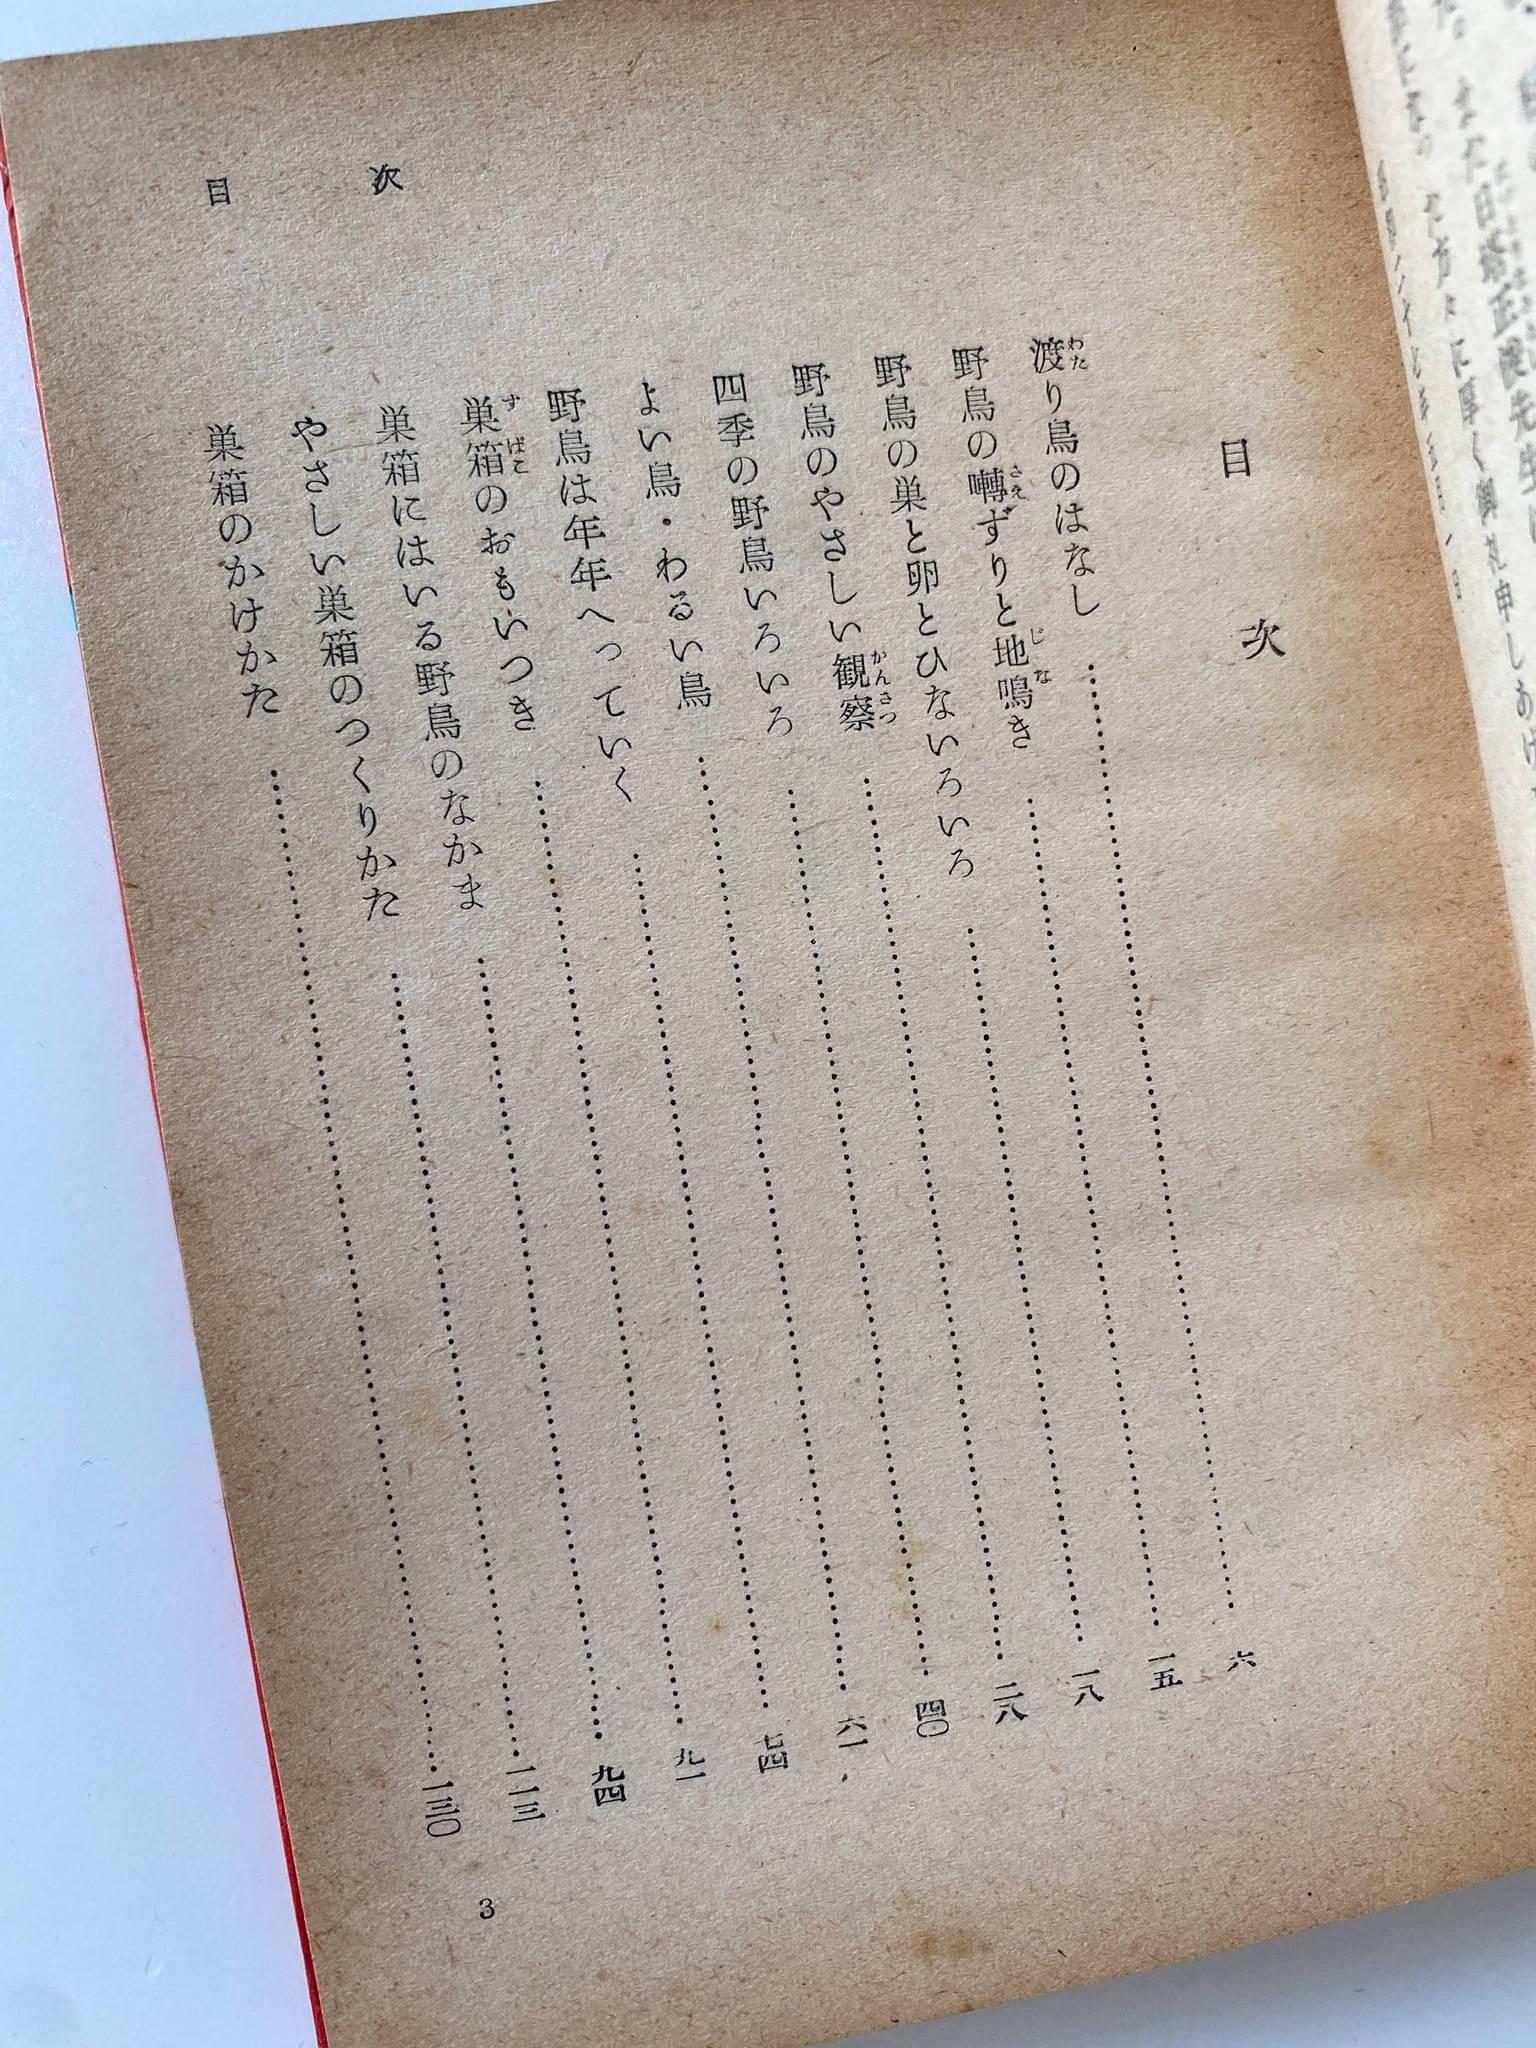 に厚く御礼申しあげ
目次
わた
渡り鳥のはなし……六
さえ じな
野鳥の囀ずりと地鳴き……一五
野鳥の巣と卵とひないろいろ……一八
かんさつ
野鳥のやさしい観察……二八
四季の野鳥いろいろ……四〇
よい鳥・わるい鳥……六一
野鳥は年年へっていく……七四
すばこ
巣箱のおもいつき……九一
巣箱にはいる野鳥のなかま……九四
やさしい巣箱のつくりかた……一一三
巣箱のかけかた……一三〇
目次
3